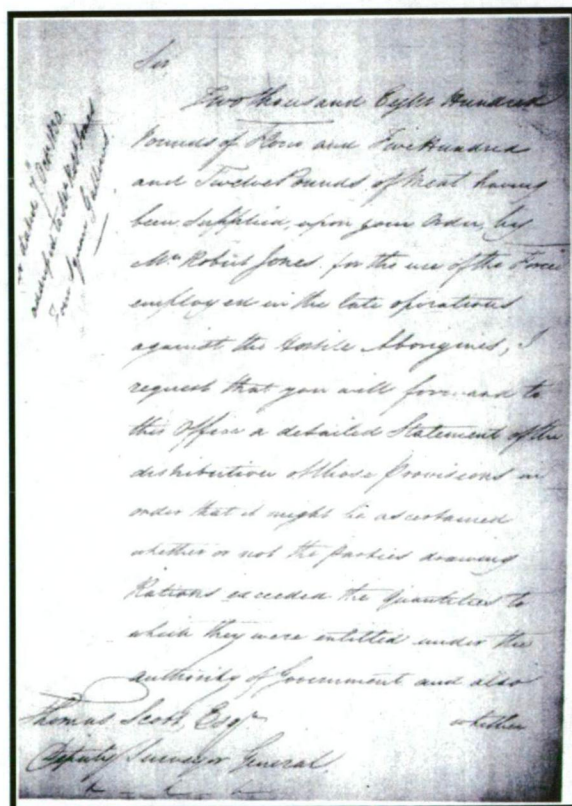 Sir,
Two thousand Eight Hundred
Pounds of Flour and Five Hundred
and Twelve Pounds of Meat having
been supplied, upon your Order, by
Mr Robert Jones for the use of the Force
employed in the late operations
against the Hostile Aborigines, I
request that you will forward to
this Office a detailed Statement of the
distribution of those Provisions in
order that it might be ascertained
whether or not the parties drawing
Rations exceeded the quantities to
which they were entitled under the
authority of Government and also
whether
Thomas Scott, Esqr
Deputy Surveyor General